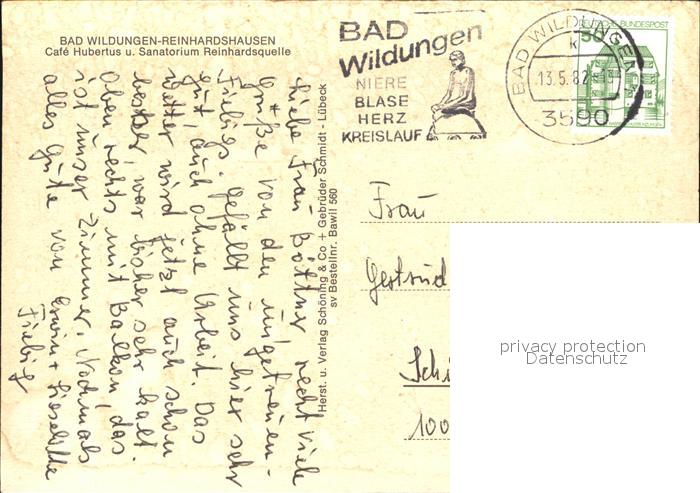 BAD WILDUNGEN-REINHARDSHAUSEN
Café Hubertus u. Sanatorium Reinhardsquelle
BAD
Wildungen
NIERE
BLASE
HERZ
KREISLAUF
BAD WILDUNGEN
k
13.5.82
3590
DEUTSCHE BUNDESPOST
50
Liebe Frau Böttner recht viele
Grüße von den ungetreuen
Fiebigs. Gefällt uns hier sehr
gut, auch ohne Arbeit. Das
Wetter wird jetzt auch schon
besser, war bisher sehr kalt.
Oben rechts mit Balkon, das
ist unser Zimmer. Nochmals
alles Gute von Erwin + Lieselotte
Fiebig
Herst. u. Verlag Schöning & Co + Gebrüder Schmidt - Lübeck
sv Bestellnr. Bawil 560
Frau
Gertrud
Schi
100
privacy protection
Datenschutz